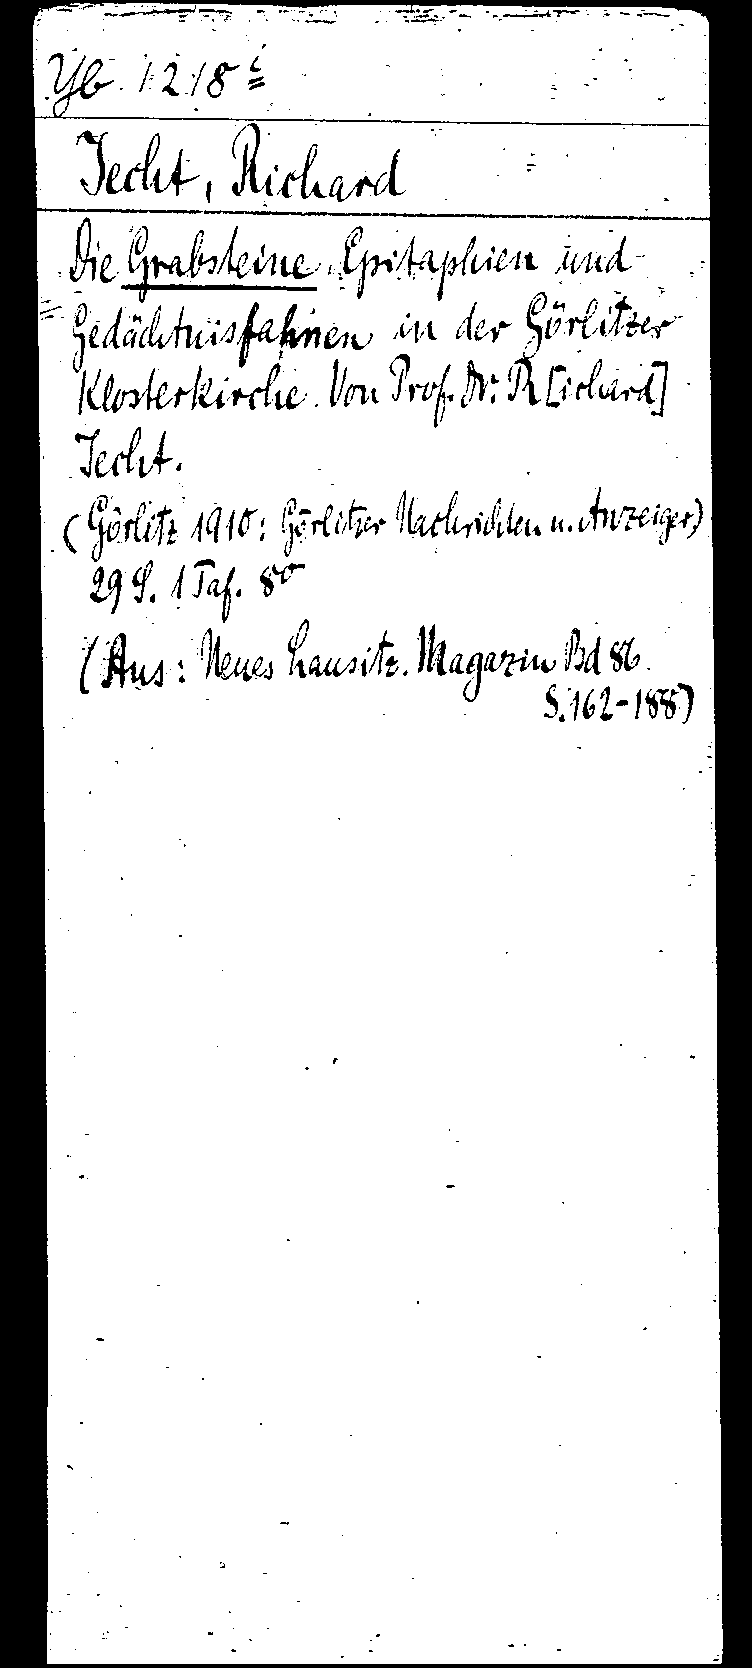 Yb 1218 i
Jecht, Richard
Die Grabsteine, Epitaphien und
Gedächtnisfahnen in der Görlitzer
Klosterkirche. Von Prof. Dr. R[ichard]
Jecht.
(Görlitz 1910: Görlitzer Nachrichten u. Anzeiger)
29 S. 1 Taf. 8°
(Aus: Neues Lausitz. Magazin Bd 86
S. 162-188)